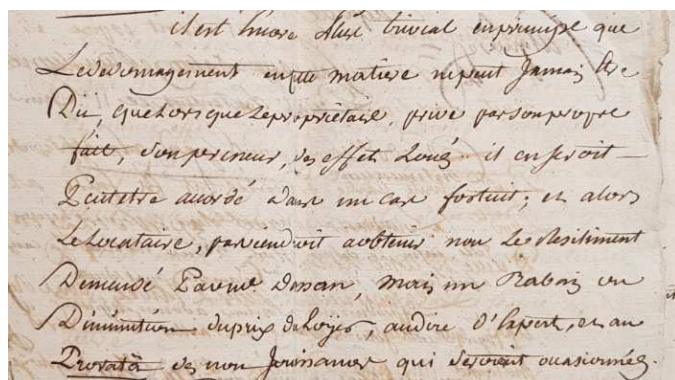 il est encore plus trivial en principe que
Le dedomagement en pile matiere ne peut Jamais être
Dû, que Lorsque Le propriétaire, prive par son propre
fait, son preneur, des effets Loués. il en seroit
Peutetre accordé dans un cas fortuit; et alors
Le Locataire, parviendroit a obtenir non Le Resiliment
Demandé Par me Dassan, mais un Rabais ou
Diminution du prix de Loyer, au dire d'Expert, et au
Prorata des non Jouissances qui seroient occasionnées.